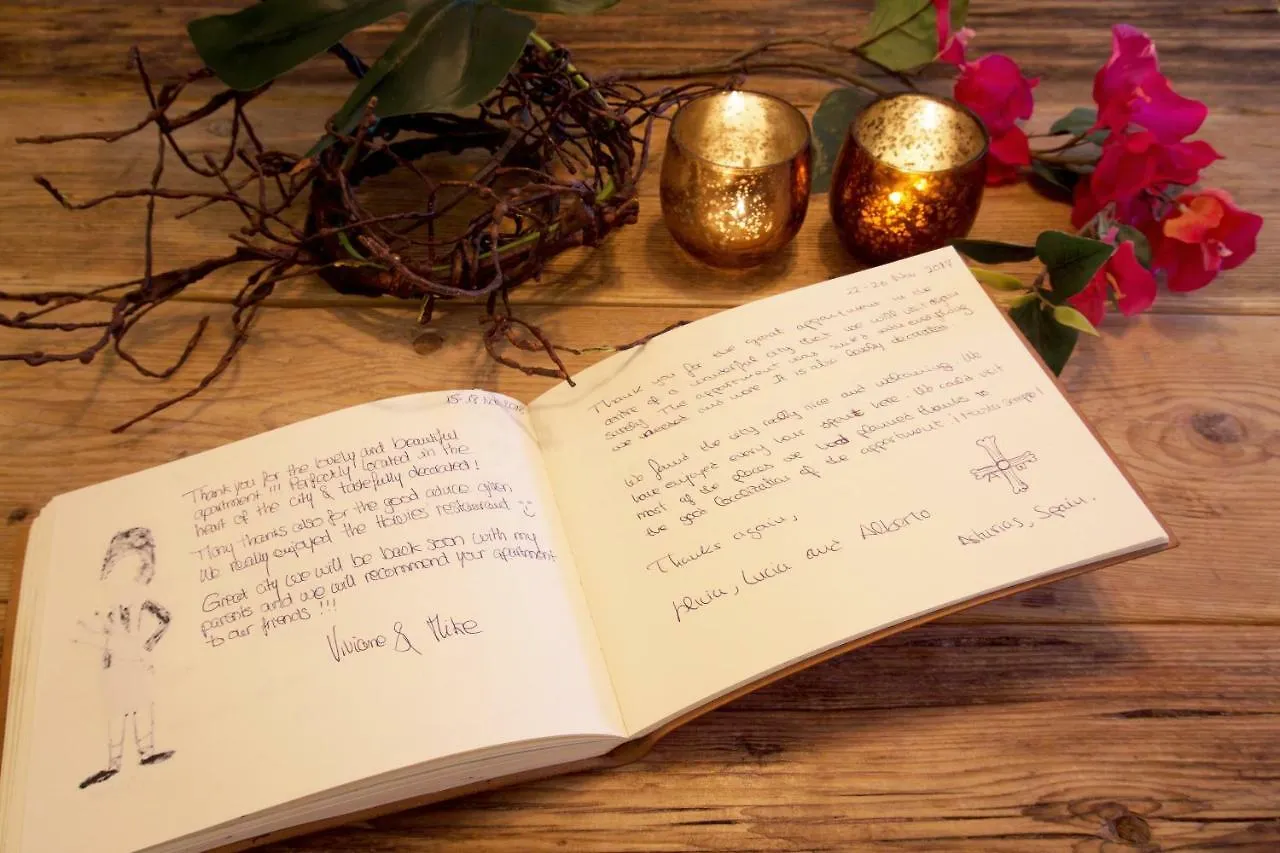 15-18 Nov 2018
Thank you for the lovely and beautiful
apartment !!! Perfectly located in the
heart of the city & tastefully decorated!
Many thanks also for the good advice given
We really enjoyed the Howies' restaurant
Great city we will be back soon with my
parents and we will recommend your apartment
to our friends !!!
Viviane & Mike
22-26 Nov
Thank you for the great appartment in the
centre of a wonderful city that we will visit again
surely. The appartment was suited with everything
we needed and more. It is also lovely decorated.
We found the city really nice and welcoming. We
have enjoyed every hour spent here. We could visit
most of the places we had planned thanks to
the good localization of the appartment
Thanks again,
Lucia and Alberto
Asturias, Spain.